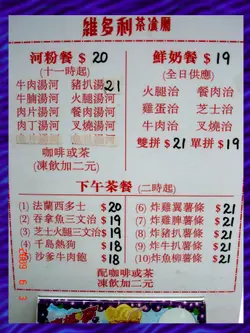 維多利茶滾廳
河粉餐 $ 20
(十一時起)
牛肉湯河 豬扒湯河 21
牛腩湯河 火腿湯河
肉片湯河 餐肉湯河
肉丁湯河 叉燒湯河
咖啡或茶
(凍飲加二元)
鮮奶餐 $ 19
(全日供應)
火腿治 餐肉治
雞蛋治 芝士治
牛肉治 叉燒治
雙拼 $ 21 單拼 $ 19
下午茶餐 (二時起)
(1) 法蘭西多士 $ 20
(2) 吞拿魚三文治 $ 19
(3) 芝士火腿三文治 $ 19
(4) 千島熱狗 $ 18
(5) 沙爹牛肉飽 $ 18
(6) 炸雞翼薯條 $ 21
(7) 炸雞脾薯條 $ 21
(8) 炸豬扒薯條 $ 21
(9) 炸牛扒薯條 $ 21
(10) 炸魚柳薯條 $ 21
配咖啡或茶
(凍飲加二元)